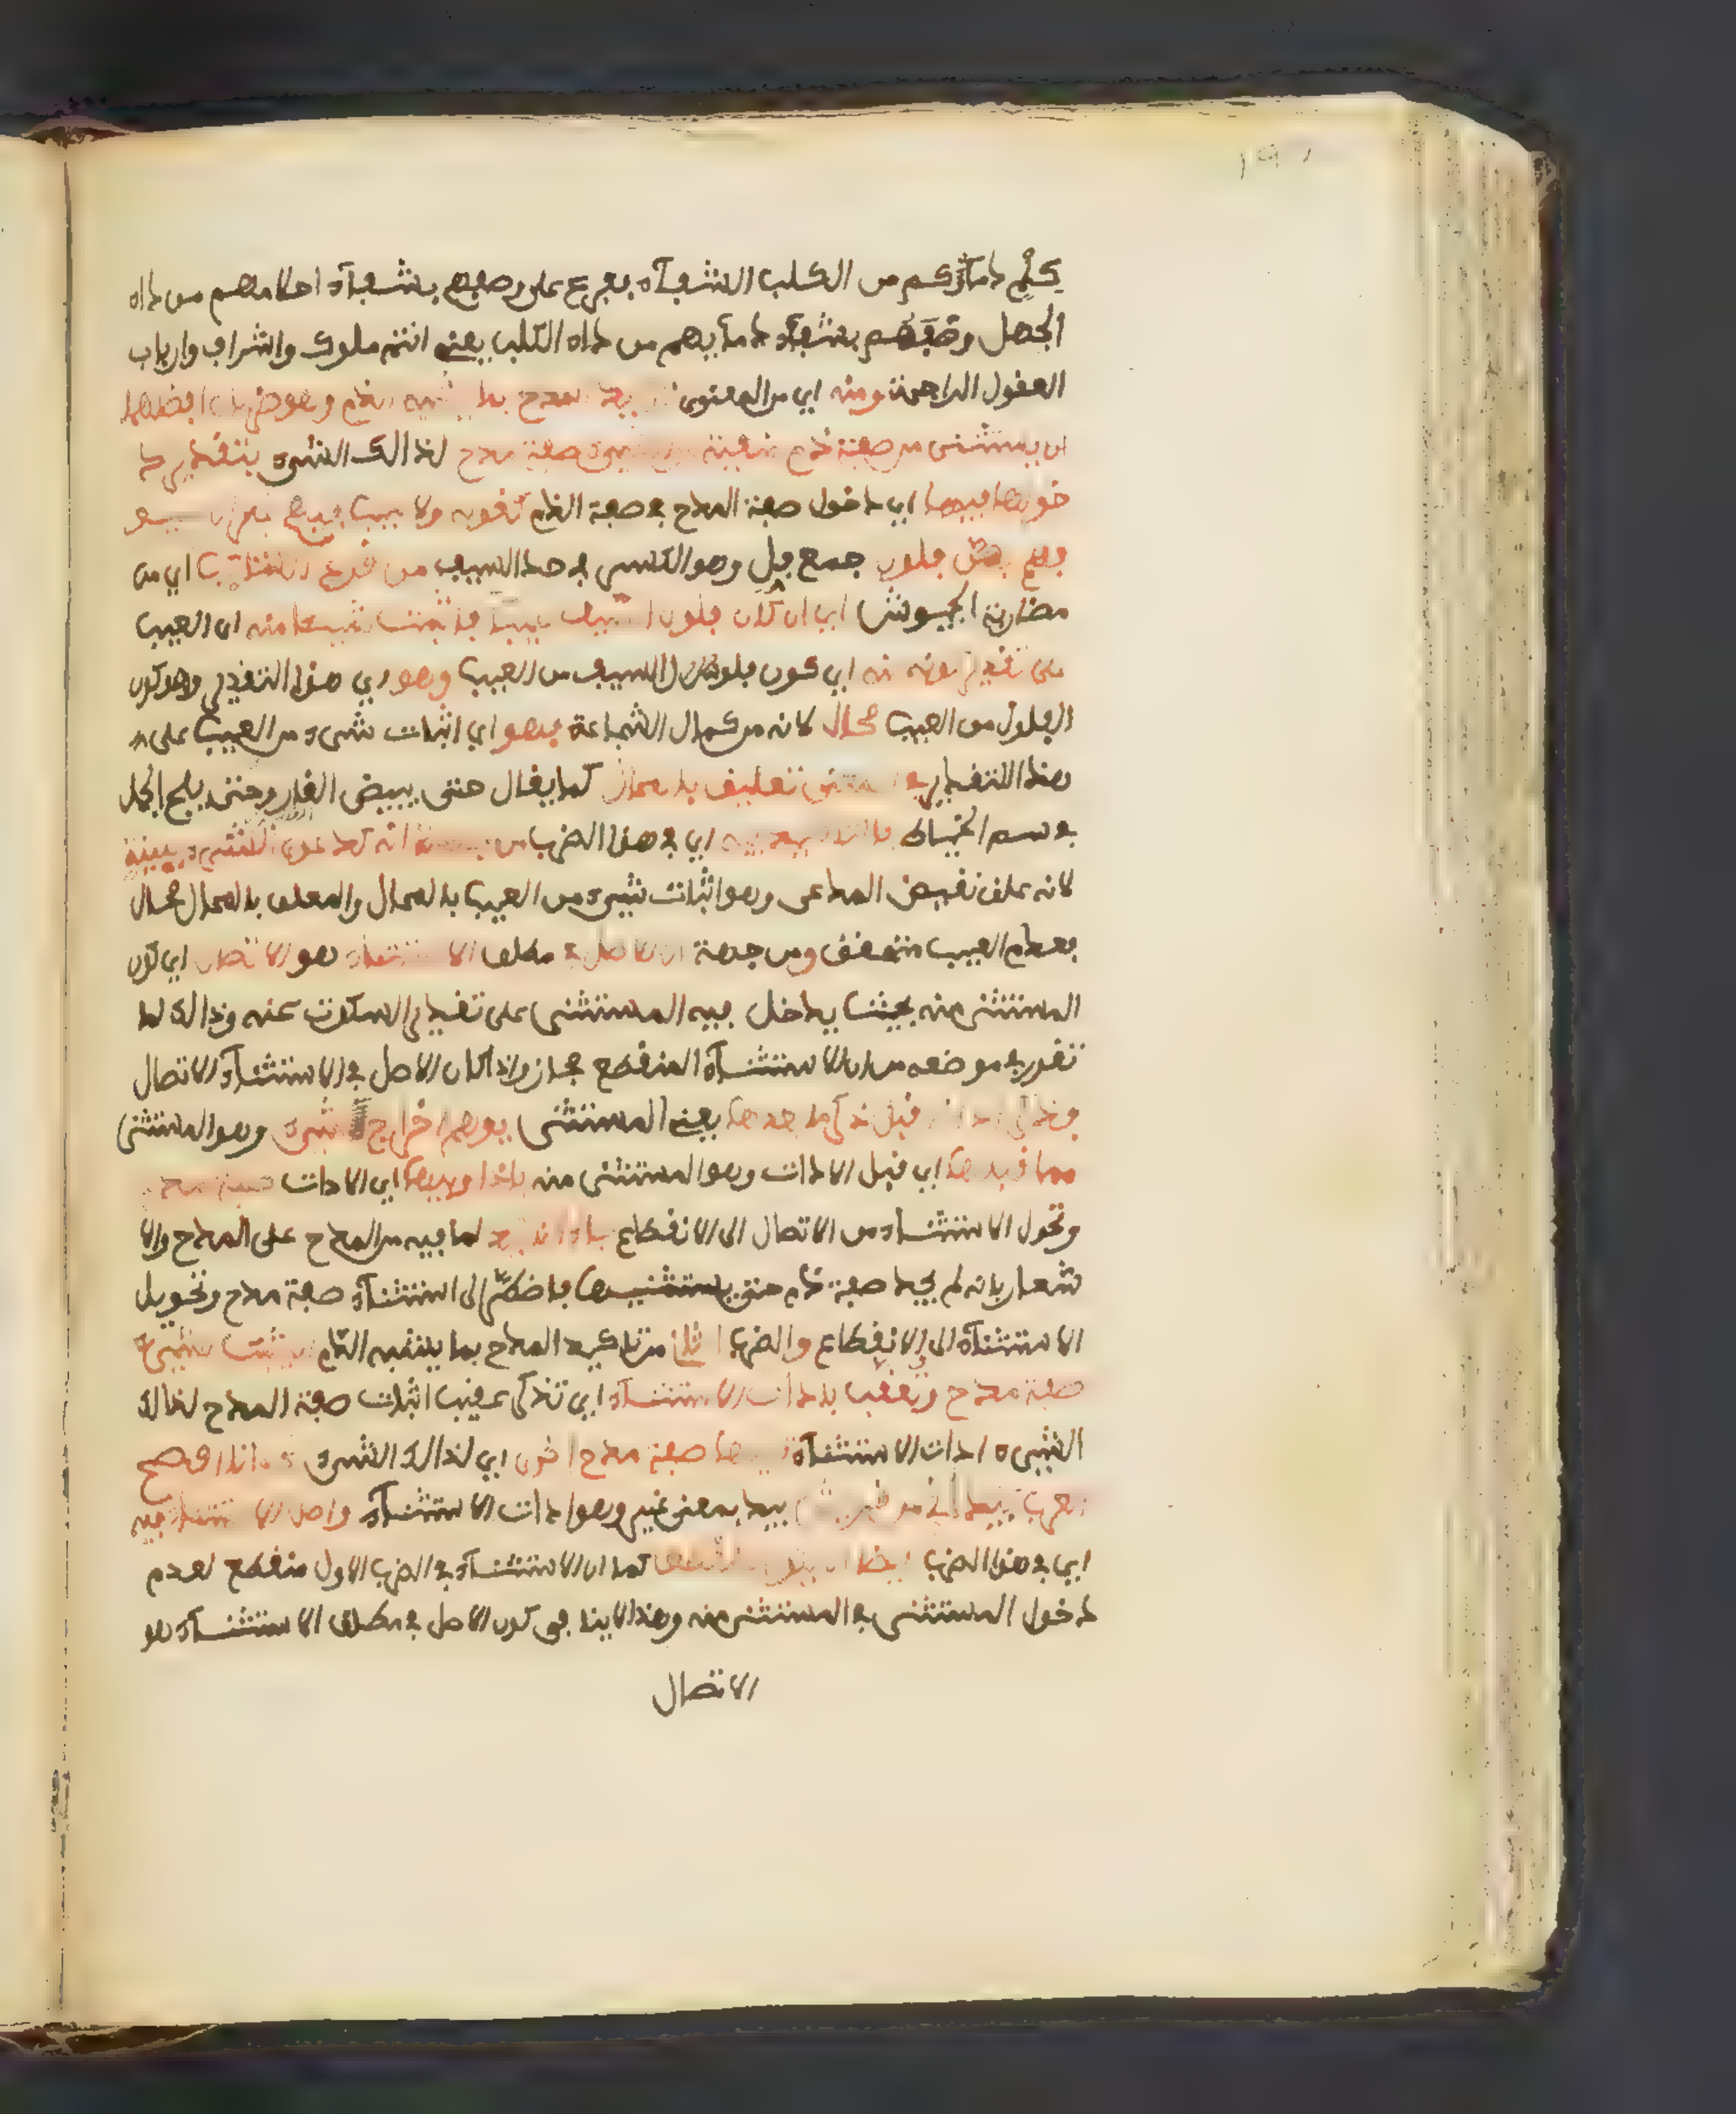 كلم دماؤكم من الكلب الشفآء بفرع على وصفهم بشفآء احلامهم من داء
الجهل وصفهم بشفآء دمآيهم من داء الكلب يعني انتم ملوك واشراف وارباب
العقول الراجحة ومنه اي من المعنوي المدح بما الذم وهو ضربان افضلهما
ان يستثنى من صفة ذم منفية صفة مدح لذالك الشيء بتقدير د
خولها فيها اي دخول صفة المدح في صفة الذم كقوله ولا عيب فيهم غير ان سيو
فهم بهن فلول جمع فل وهو الكسر في حد السيف من قراع الكتائب اي من
مضاربة الجيوش اي ان كان فلول السيف عيبا فاثبت شيئا منه ان العيب
على تقدير كونه منه اي كون فلول السيف من العيب وهو اي هذا التقدير وهو كون
الفلول من العيب محال لانه من كمال الشجاعة فهو اي اثبات شيء من العيب على
هذا التقدير في المعنى تعليق بالمحال كما يقال حتى يبيض القار وحتى يلج الجمل
في سم الخياط فالتاكيد فيه اي في هذا الضرب من جهة انه كدعوى الشيء ببينة
لانه علق نقيض المدعى وهو اثبات شيء من العيب بالمحال والمعلق بالمحال محال
فعدم العيب متحقق ومن جهة ان الاصل في مطلق الاستثناء هو الاتصال اي كون
المستثنى منه بحيث يدخل فيه المستثنى على تقدير السكوت عنه وذالك لما
تقرر في موضعه من ان الاستثنآء المنقطع مجاز واذا كان الاصل في الاستثنآء الاتصال
فذكر اداته قبل ذكر ما بعدها يعني المستثنى يوهم اخراج شيء وهو المستثنى
مما قبلها اي قبل الادات وهو المستثنى منه فاذا وليها اي الادات صفة مدح
وتحول الاستثناء من الاتصال الى الانقطاع جاء التاكيد لما فيه من المدح على المدح والا
شعار بانه لم يجد صفة ذم حتى يستثنيها فاضطر الى استثنآء صفة مدح وتحويل
الاستثنآء الى الانقطاع والضرب الثاني من تاكيد المدح بما يشبه الذم ان يثبت لشيء
صفة مدح وتعقب بادات الاستثنآء اي تذكر عقيب اثبات صفة المدح لذالك
الشيء ادات الاستثنآء تليها صفة مدح اخرى اي لذالك الشيء نحو انا افصح
العرب بيد اني من قريش بيد بمعنى غير وهو ادات الاستثنآء واصل الاستثناء فيه
اي في هذا الضرب ايضا ان يكون منقطعا كما ان الاستثنآء في الضرب الاول منقطع لعدم
دخول المستثنى في المستثنى منه وهذا لا ينافي كون الاصل في مطلق الاستثنآء هو
الاتصال